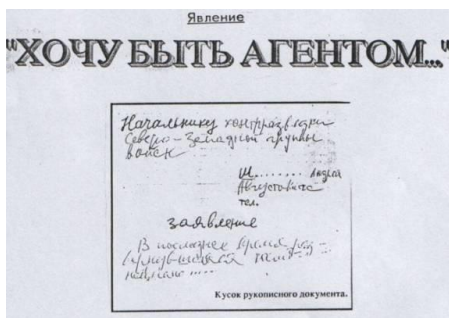 Явление
"ХОЧУ БЫТЬ АГЕНТОМ..."
Начальнику контрразведки
Северо-Западной группы
войск
Ш........ Андрей
Августовича
тел.
заявление
В последнее время
.....
Кусок рукописного документа.